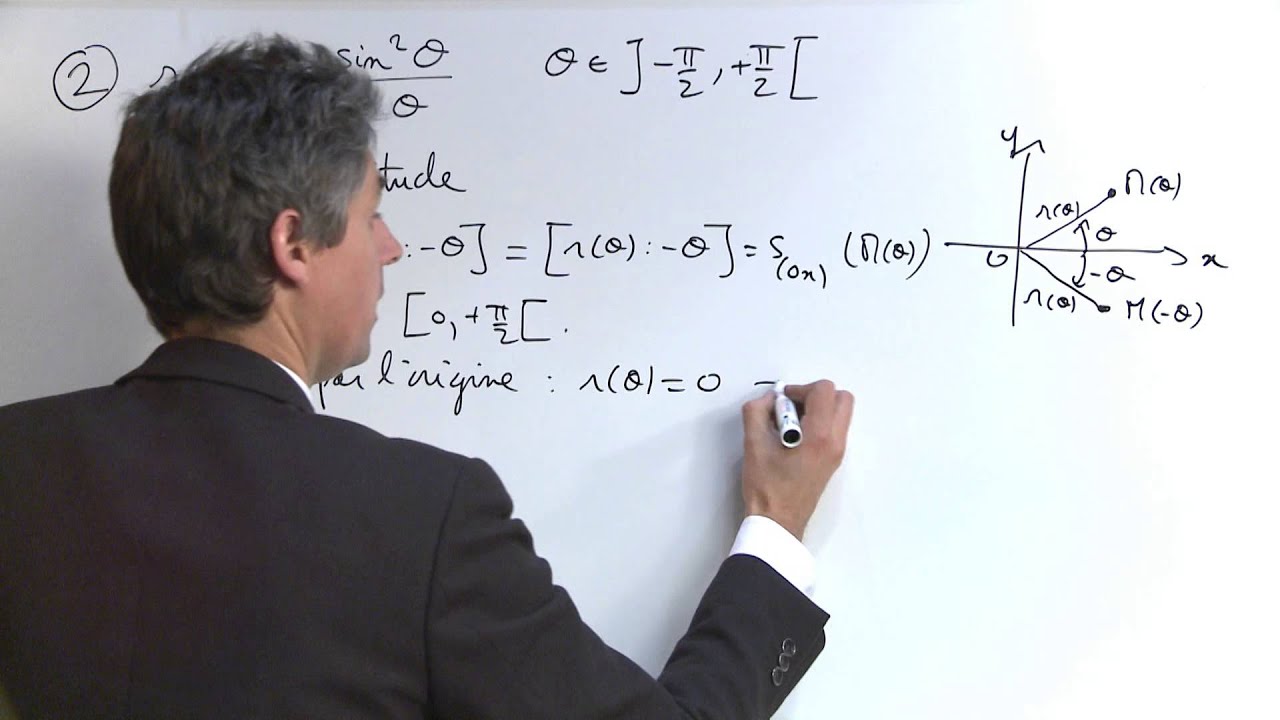 ② r sin²θ / θ θ ∈ ]-π/2, +π/2[
: -θ] = [r(θ) : -θ] = S(Ox) (M(θ))
[0, +π/2[.
par l'origine : r(θ) = 0
y
M(θ)
r(θ)
θ
O
x
-θ
r(θ)
M(-θ)